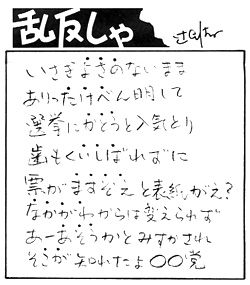 乱反しゃ
いさぎよさのないまま
ありったけべん明して
選挙にかとうと人気とり
歯もくいしばれずに
票がますぞえと表紙がえ?
なかがわからは変えられず
あーあそうかとみすかされ
そこが知れたよ〇〇党